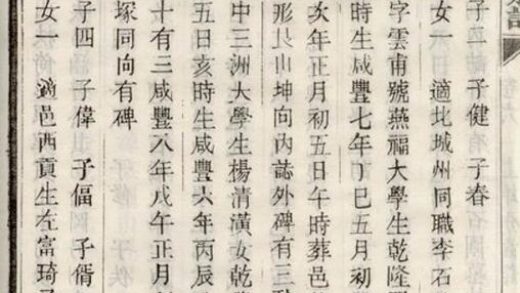 子健 子春
女一 適北城州同職李石
字雲甫號燕福大學生乾隆
時生咸豐七年丁巳五月初
亥年正月初五日午時葬邑
形艮山坤向內誌外碑有三
中三洲大學生楊清潢女乾
五日亥時生咸豐六年丙辰
十有三咸豐八年戊午正月
塚同向有碑
子四 子偉 子偪 子偦
女一 適邑西貢生左富琦